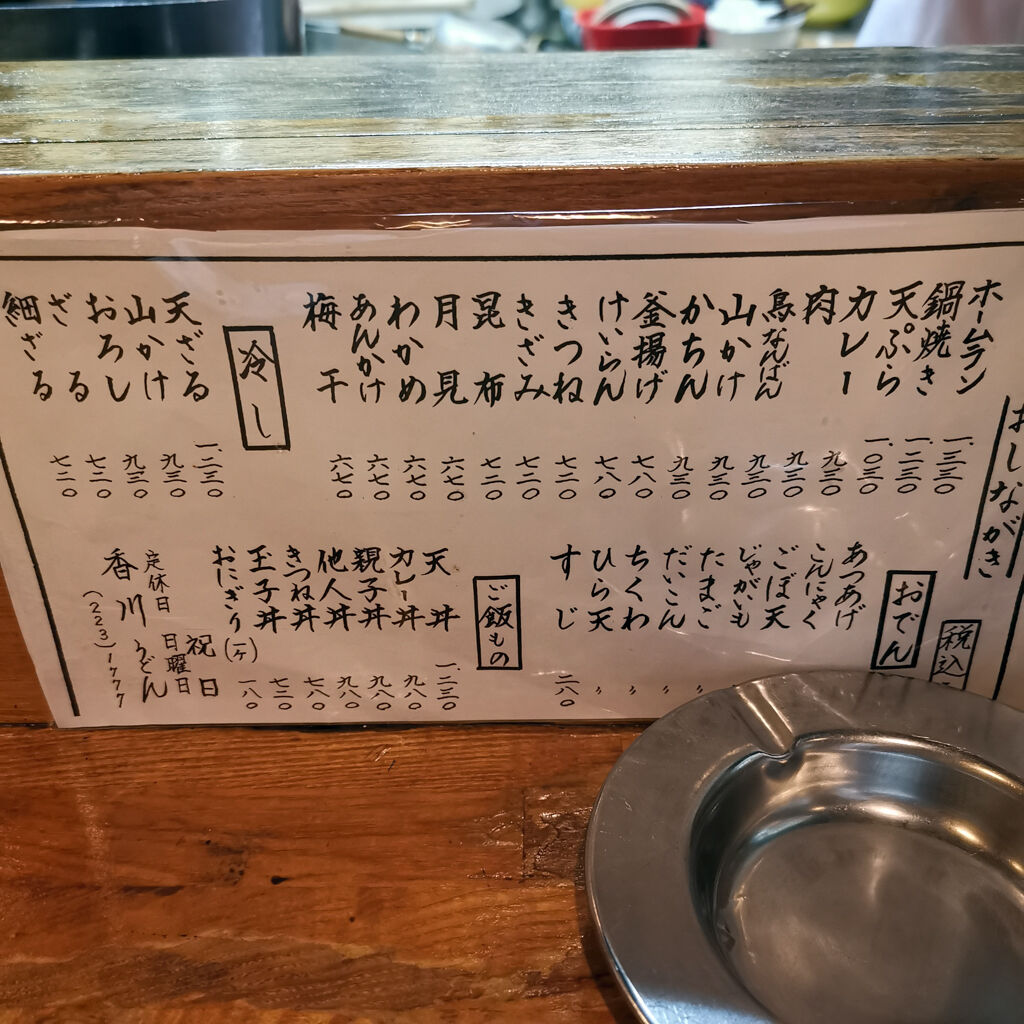 おしながき
税込
ホームラン 一、三三〇
鍋焼き 一、二三〇
天ぷら 一、〇三〇
カレー 九三〇
肉 九三〇
鳥なんばん 九三〇
山かけ 九三〇
かちん 九三〇
釜揚げ 七八〇
けいらん 七八〇
きつね 七二〇
きざみ 七二〇
昆布 七二〇
月見 六七〇
わかめ 六七〇
あんかけ 六七〇
梅干 六七〇
冷し
天ざる 一、二三〇
山かけ 九三〇
おろし 九三〇
ざる 七二〇
細ざる 七二〇
おでん
あつあげ
こんにゃく
ごぼ天
じゃがいも
たまご 〃
だいこん 〃
ちくわ 〃
ひら天 〃
すじ 二八〇
ご飯もの
天丼 一、二三〇
カレー丼 九八〇
親子丼 九八〇
他人丼 九八〇
きつね丼 七八〇
玉子丼 七二〇
おにぎり(一ヶ) 一八〇
定休日
祝日
日曜日
香川うどん
(223)1777